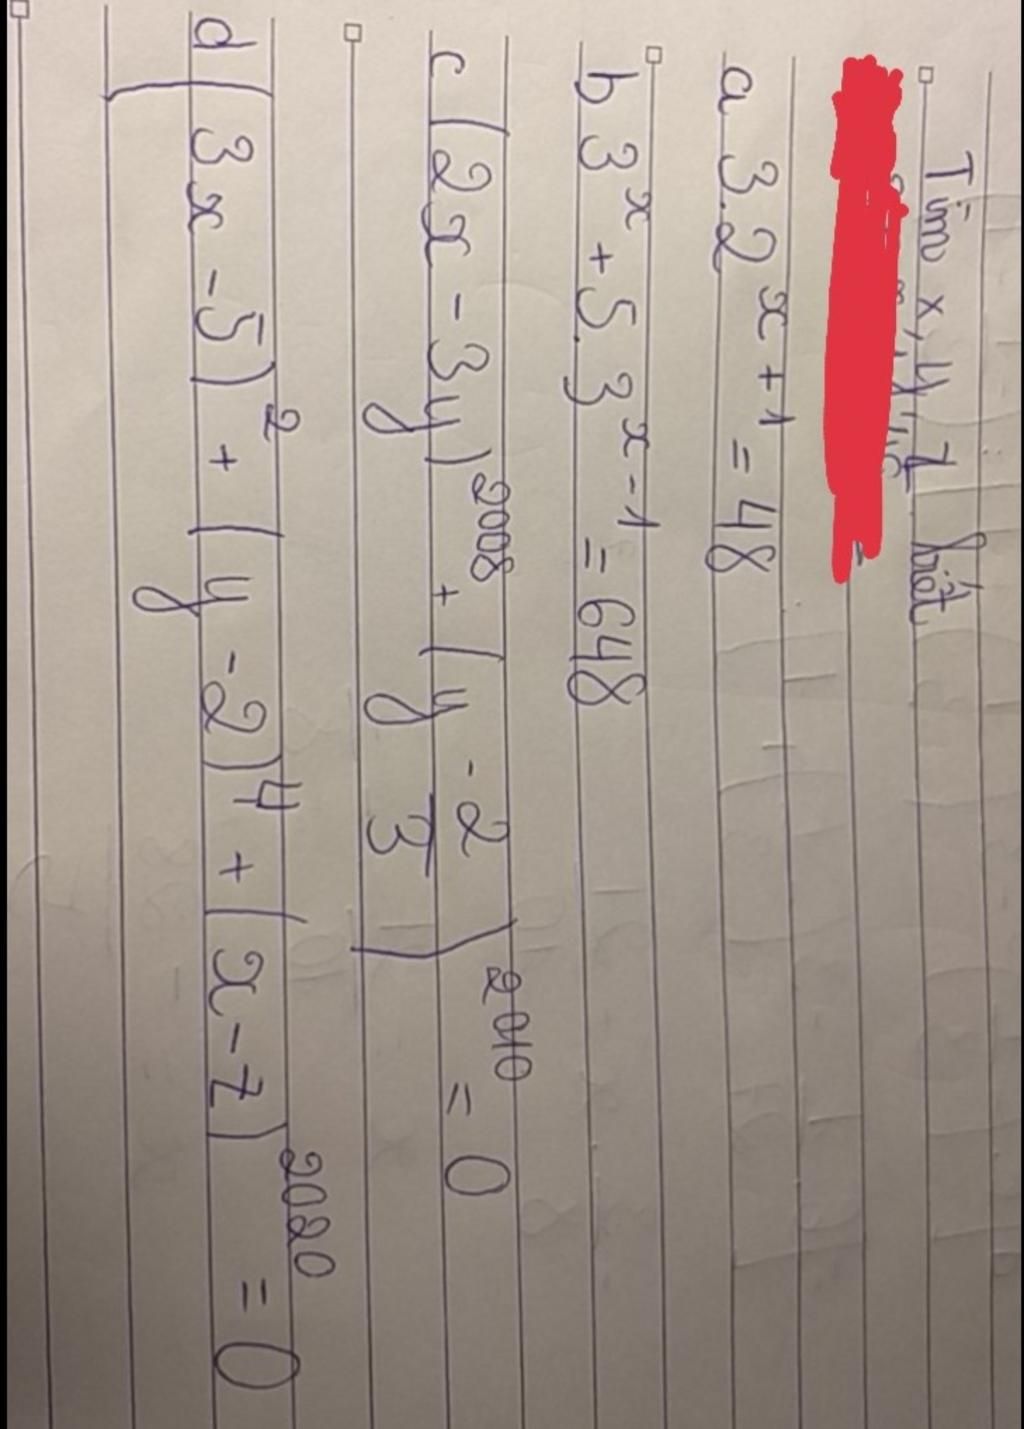 Tìm x, y, z biết
a 3.2^x+1 = 48
b 3^x + 5.3^x-1 = 648
c (2x - 3y)^2008 + (y - 2/3)^2010 = 0
d (3x - 5)^2 + (y - 2)^4 + (x - z)^2020 = 0